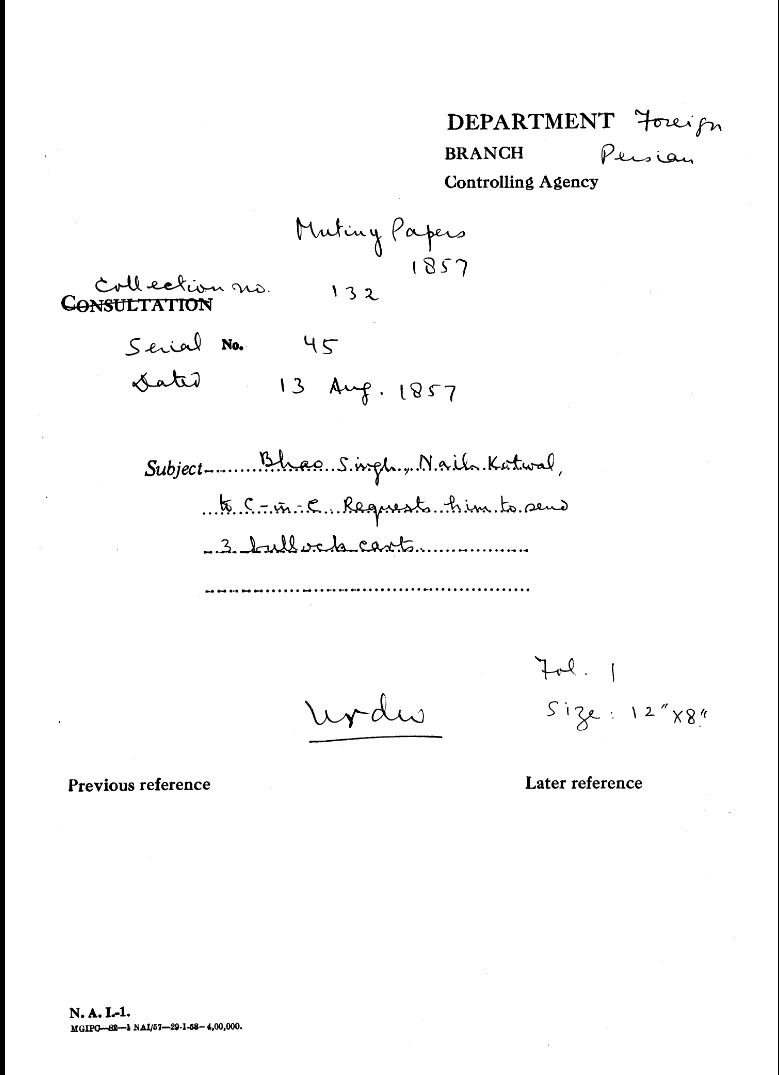 DEPARTMENT Foreign
BRANCH Persian
Controlling Agency
Mutiny Papers
1857
Collection no. 132
CONSULTATION
Serial No. 45
Dated 13 Aug. 1857
Subject Bhao Singh, Naib Kotwal,
to C-in-C. Requests him to send
3 bullock carts
Fol. 1
Urdu
Size: 12"X8"
Previous reference Later reference
N. A. I.-1.
MGIPC—82—1 NAI/57—29-1-58—4,00,000.